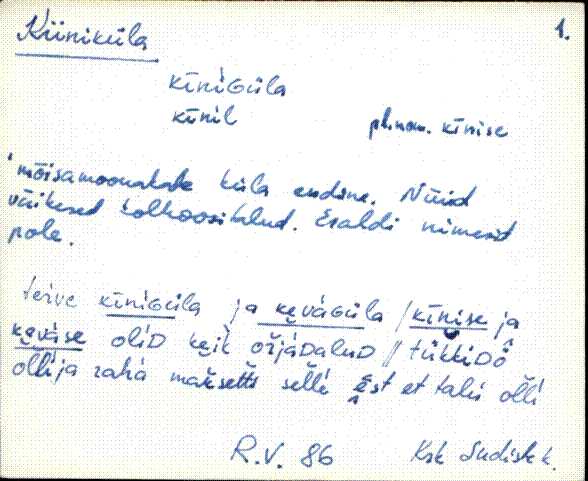 Kiiniküla 1.
kīniɢüla
kīnil pl.nom. kīnise
'mõisamoonakate küla endine. Nüüd
väikesed kolhoositalud. Eraldi nimesid
pole.
terve kīniɢüla ja keväɢüla / kīnise ja
keväse oliD keik orjaDaluD // tükkiDõ
olli ja raha maksetti selle ēst et talu olli
R.V. 86 Krk Sudiste k.